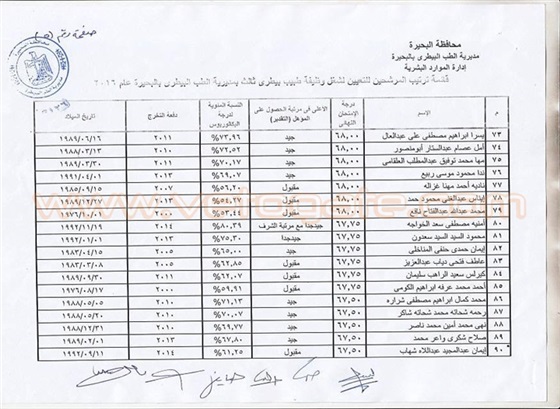 صفحة رقم (٥)
محافظة البحيرة
مديرية الطب البيطرى بالبحيرة
إدارة الموارد البشرية
قائمة ترتيب المرشحين للتعيين لشغل وظيفة طبيب بيطرى ثالث بمديرية الطب البيطرى بالبحيرة عام ٢٠١٦
م الإسم درجة الإمتحان النهائى الاعلى فى مرتبة الحصول على المؤهل (التقدير) النسبة المئوية لدرجة البكالوريوس دفعة التخرج تاريخ الميلاد
٧٣ يسرا ابراهيم مصطفى على عبدالعال ٦٨,٠٠ جيد ٧٣,٩٦% ٢٠١١ ١٩٨٩/٠٦/١٦
٧٤ أمل عصام عبدالستار أبومنصور ٦٨,٠٠ جيد ٧٢,٥٢% ٢٠١٠ ١٩٨٨/٠٣/١٣
٧٥ مها محمد توفيق عبدالمطلب العلقامى ٦٨,٠٠ جيد ٧٠,١٧% ٢٠١١ ١٩٨٩/٠٣/٣٠
٧٦ ندا محمود موسى ربيع ٦٨,٠٠ جيد ٦٩,٠٧% ٢٠١٣ ١٩٩١/٠٤/٠١
٧٧ ناديه أحمد مهنا غزاله ٦٨,٠٠ مقبول ٥٦,٢٠% ٢٠٠٧ ١٩٨٥/٠٩/١٥
٧٨ إيناس عبدالغنى محمود حمد ٦٨,٠٠ مقبول ١٩٨٩/١٢/١٧
٧٩ محمد عبدالله عبدالفتاح نافع ٦٨,٠٠ مقبول ١٩٧٦/١٠/٠١
٨٠ أمنيه مصطفى سعد الخواجه ٦٧,٧٥ جيدجدا مع مرتبة الشرف ٨٠,٣٩% ٢٠١٤ ١٩٩٢/١١/١٩
٨١ محمود السيد السيد سعدون ٦٧,٧٥ جيدجدا ٧٥,٣٠% ٢٠١٣ ١٩٩٢/٠١/٠١
٨٢ إيمان حمدى حنفى المناخلى ٦٧,٧٥ جيد ٦٥,٠٠% ٢٠٠٥ ١٩٨٣/٠٤/١٥
٨٣ عاطف فتحى دياب عبدالعزيز ٦٧,٧٥ مقبول ٦٢,٨٥% ٢٠٠٥ ١٩٨٣/٠٣/٠٨
٨٤ كيرلس سعيد الراهب سليمان ٦٧,٧٥ مقبول ٦٢,٠٧% ٢٠١١ ١٩٨٩/٠٩/٣٠
٨٥ أحمد محمد عرفه ابراهيم الكومى ٦٧,٧٥ مقبول ٥٩,٩١% ١٩٧٦/٠٨/١٧
٨٦ محمد كمال ابراهيم مصطفى شراره ٦٧,٥٠ جيد ٧١,١٣% ٢٠١٠ ١٩٨٨/٠٥/٠٥
٨٧ رحمه شحاته محمد شحاته شاكر ٦٧,٥٠ جيد ٧٠,٠٧% ٢٠١٠ ١٩٨٨/٠٥/٢٠
٨٨ نهى محمد أمين محمد ناصر ٦٧,٥٠ جيد ٦٩,٧٧% ٢٠١٠ ١٩٨٨/١٢/٣١
٨٩ صلاح شكرى واعر محمد ٦٧,٥٠ جيد ٦٧,٨٠% ٢٠١٣ ١٩٩٠/٠٢/٠٤
٩٠ إيمان عبدالمجيد عبداللاه شهاب ٦٧,٥٠ مقبول ٦١,٢٥% ٢٠١٤ ١٩٩٢/٠٩/١١